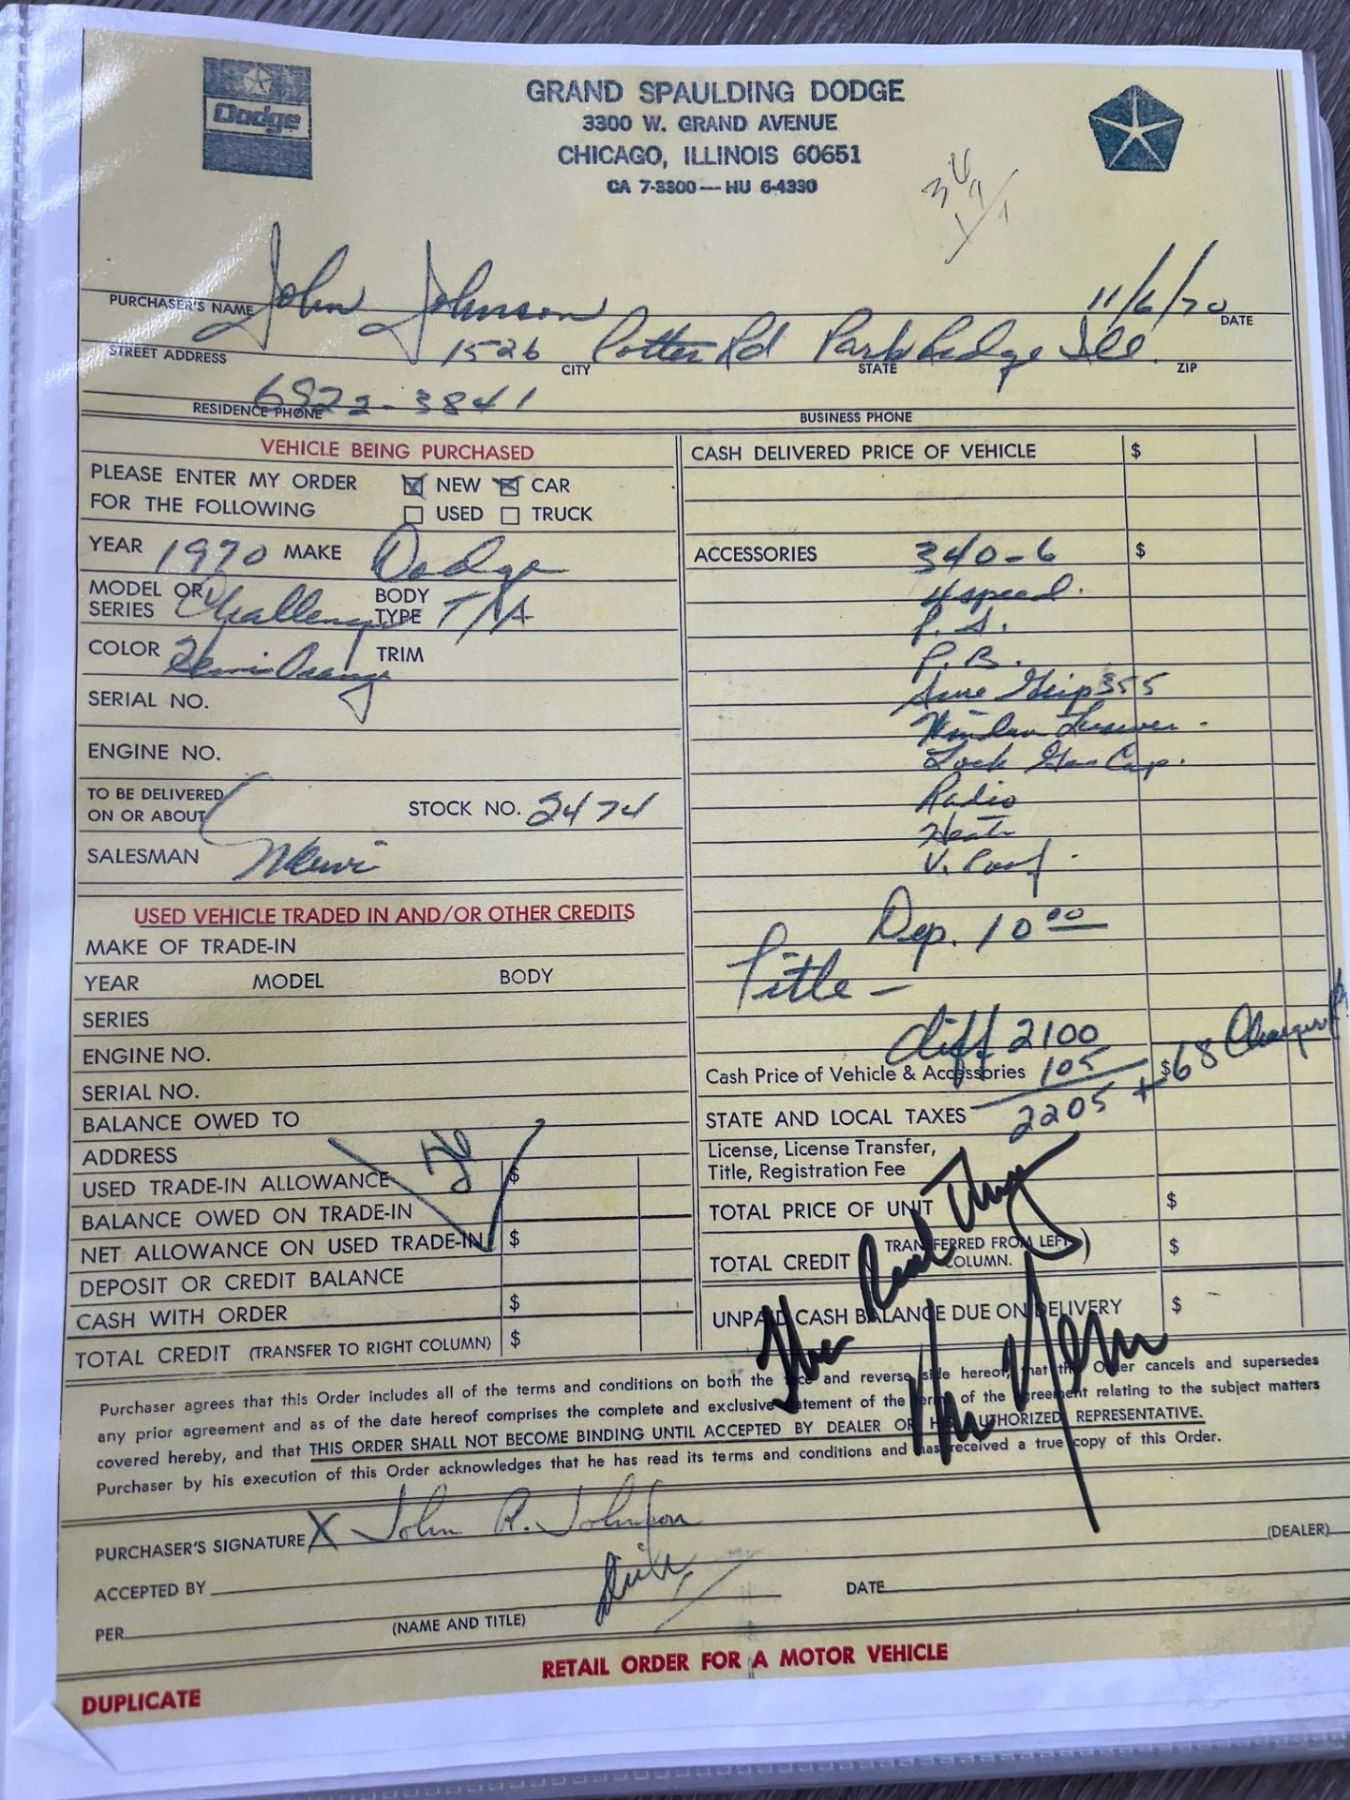 Dodge
GRAND SPAULDING DODGE
3300 W. GRAND AVENUE
CHICAGO, ILLINOIS 60651
CA 7-3300 — HU 6-4330
PURCHASER'S NAME John Johnson 11/6/70 DATE
STREET ADDRESS 1526 Potter Rd Park Ridge Ill.
CITY STATE ZIP
RESIDENCE PHONE 6922-3841 BUSINESS PHONE
VEHICLE BEING PURCHASED
PLEASE ENTER MY ORDER ☒ NEW ☒ CAR
FOR THE FOLLOWING ☐ USED ☐ TRUCK
YEAR 1970 MAKE Dodge
MODEL OR SERIES Challenger BODY TYPE T/A
COLOR Hemi Orange TRIM
SERIAL NO.
ENGINE NO.
TO BE DELIVERED ON OR ABOUT STOCK NO. 2474
SALESMAN
USED VEHICLE TRADED IN AND/OR OTHER CREDITS
MAKE OF TRADE-IN
YEAR MODEL BODY
SERIES
ENGINE NO.
SERIAL NO.
BALANCE OWED TO
ADDRESS
USED TRADE-IN ALLOWANCE $
BALANCE OWED ON TRADE-IN
NET ALLOWANCE ON USED TRADE-IN $
DEPOSIT OR CREDIT BALANCE
CASH WITH ORDER $
TOTAL CREDIT (TRANSFER TO RIGHT COLUMN) $
CASH DELIVERED PRICE OF VEHICLE $
ACCESSORIES 340-6 $
4 speed.
P. S.
P. B.
Sure Grip 355
Window Louver.
Lock Gas Cap.
Radio
Heater
V. Roof.
Dep. 10 00
Title —
diff 2100
Cash Price of Vehicle & Accessories 105 $
2205 + 68 Charger
STATE AND LOCAL TAXES
License, License Transfer,
Title, Registration Fee
TOTAL PRICE OF UNIT $
TOTAL CREDIT (TRANSFERRED FROM LEFT COLUMN.) $
UNPAID CASH BALANCE DUE ON DELIVERY $
The Real Thing
Mr Norm
Purchaser agrees that this Order includes all of the terms and conditions on both the face and reverse side hereof, that this Order cancels and supersedes
any prior agreement and as of the date hereof comprises the complete and exclusive statement of the terms of the agreement relating to the subject matters
covered hereby, and that THIS ORDER SHALL NOT BECOME BINDING UNTIL ACCEPTED BY DEALER OR HIS AUTHORIZED REPRESENTATIVE.
Purchaser by his execution of this Order acknowledges that he has read its terms and conditions and has received a true copy of this Order.
PURCHASER'S SIGNATURE X John R. Johnson
(DEALER)
ACCEPTED BY DATE
PER (NAME AND TITLE)
RETAIL ORDER FOR A MOTOR VEHICLE
DUPLICATE